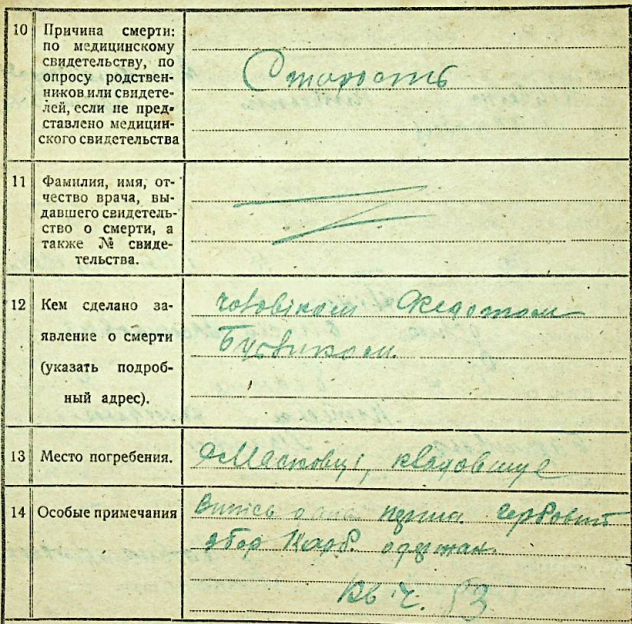 10 Причина смерти:
по медицинскому
свидетельству, по
опросу родствен-
ников или свидете-
лей, если не пред-
ставлено медицин-
ского свидетельства
Старость
11 Фамилия, имя, от-
чество врача, вы-
давшего свидетель-
ство о смерти, а
также № свиде-
тельства.
12 Кем сделано за-
явление о смерти
(указать подроб-
ный адрес).
чоловіком Федотом
13 Место погребения.
кладовище
14 Особые примечания
перша. Гербовий
збор Карб. одержан.
Кв. ч. 53